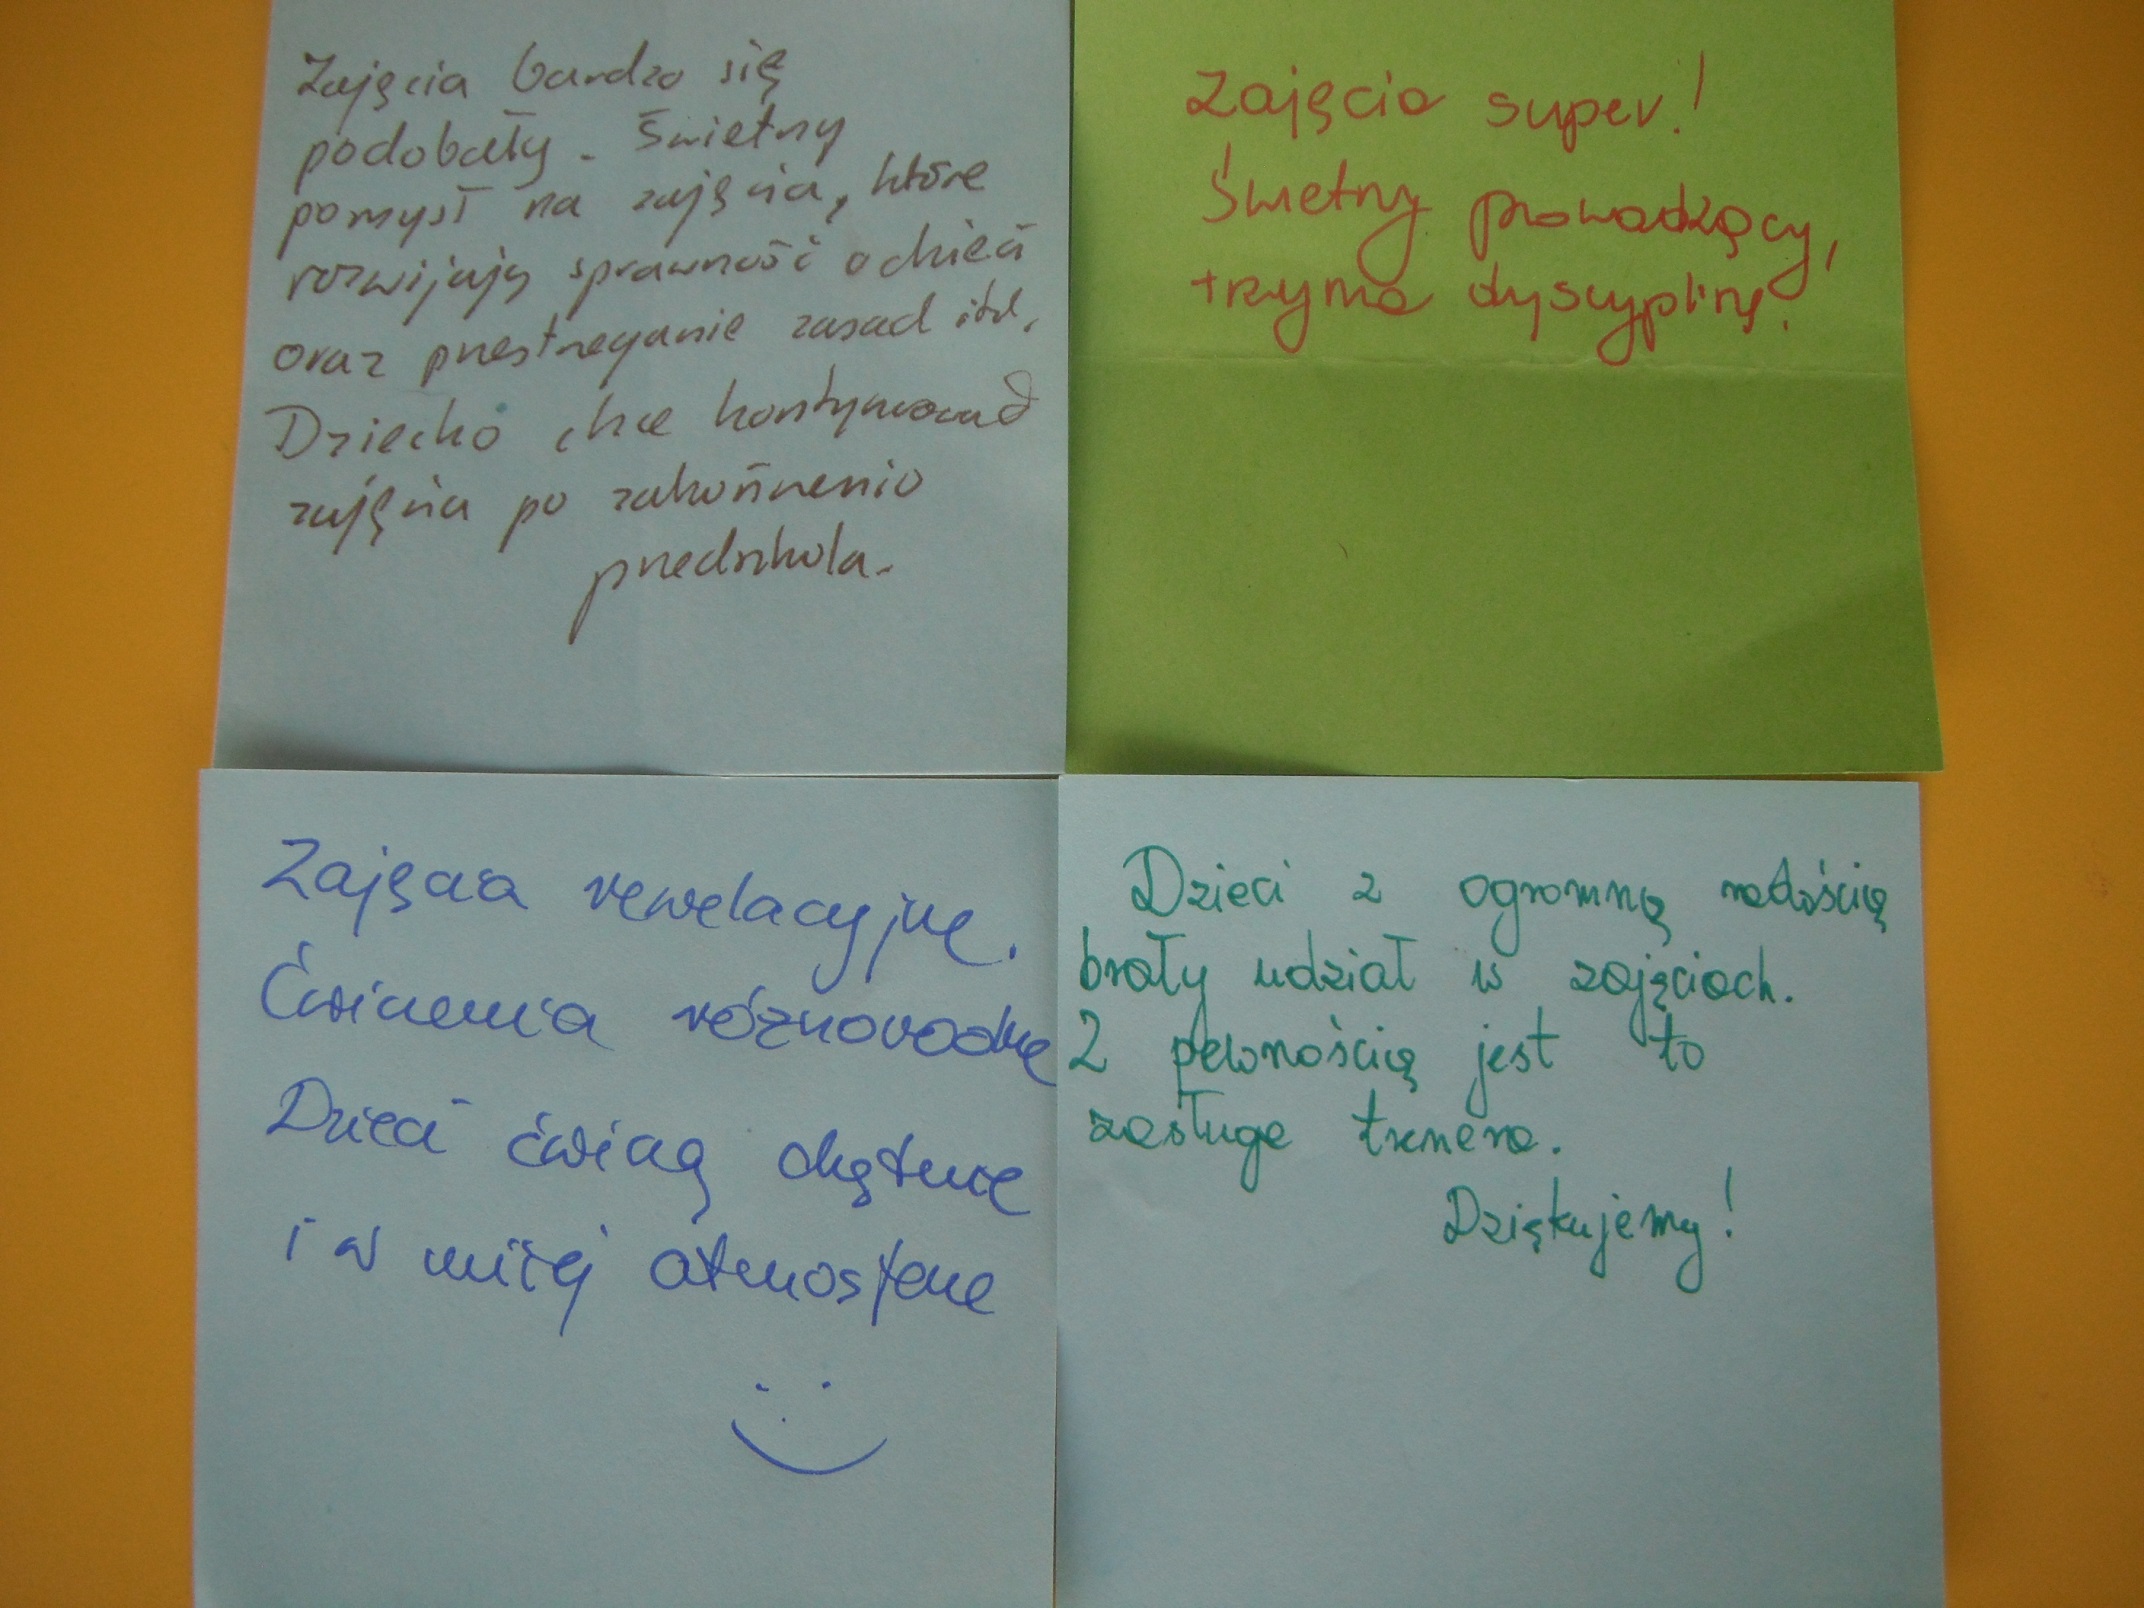 Zajęcia bardzo się
podobały. Świetny
pomysł na zajęcia, które
rozwijają sprawność u dzieci
oraz przestrzeganie zasad itd.
Dziecko chce kontynuować
zajęcia po zakończeniu
przedszkola.
Zajęcia super!
Świetny prowadzący,
trzyma dyscyplinę!
Zajęcia rewelacyjne.
Ćwiczenia różnorodne
Dzieci ćwiczą chętnie
i w miłej atmosferze
Dzieci z ogromną radością
brały udział w zajęciach.
Z pewnością jest to
zasługa trenera.
Dziękujemy!